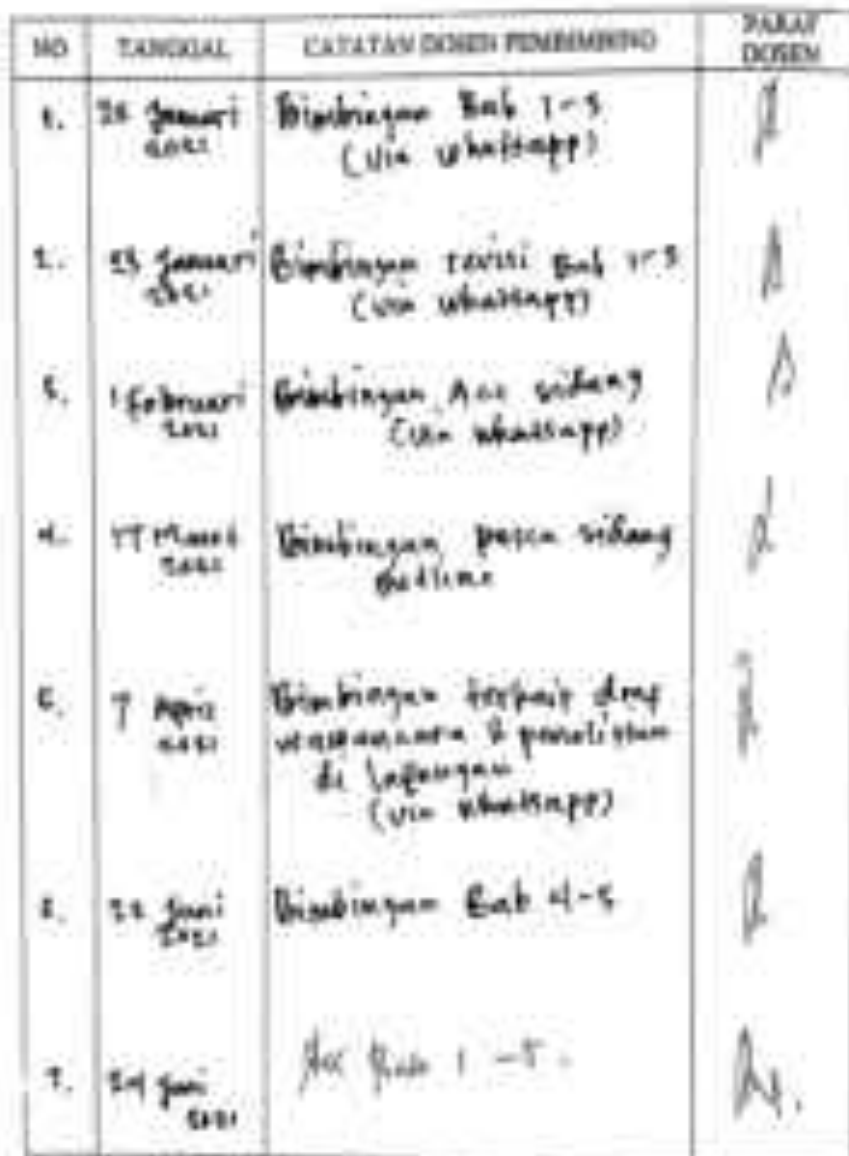 NO TANGGAL CATATAN DOSEN PEMBIMBING PARAF DOSEN
1. Januari 2021 Bimbingan Bab 1-3
(via whatsapp)
2. Januari 2021 Bimbingan revisi Bab 1-3
(via whatsapp)
3. 1 februari 2021 Bimbingan Acc sidang
(via whatsapp)
4. 17 Maret 2021 Bimbingan pasca sidang
outline
5. 7 April 2021 Bimbingan terkait draf
wawancara & penelitian
di lapangan
(via whatsapp)
6. 22 Juni 2021 Bimbingan Bab 4-5
7. 24 Juni 2021 Acc Bab 1-5.